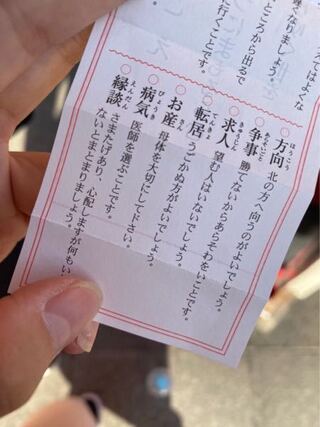 えてはよくな
くなりましょう。
ところから出るで
行くことです。
ほうこう
○方向 北の方へ向うのがよいでしょう。
あらそいごと
○争事 勝てないからあらそわないことです。
きゅうじん
○求人 望む人はいないでしょう。
てんきょ
○転居 うごかぬ方がよいでしょう。
さん
○お産 母体を大切にして下さい。
びょうき
○病気 医師を選ぶことです。
えんだん
○縁談 さまたげあり、心配しますが何もい
ないとまとまりましょう。